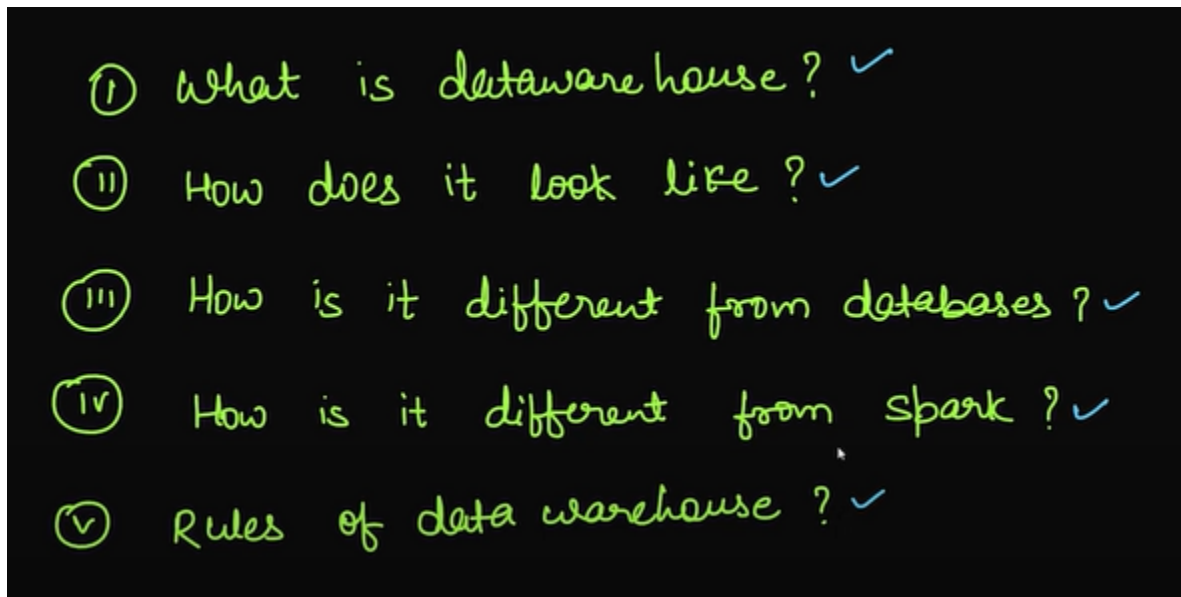 (i) What is dataware house ?
(ii) How does it look like ?
(iii) How is it different from databases ?
(iv) How is it different from spark ?
(v) Rules of data warehouse ?